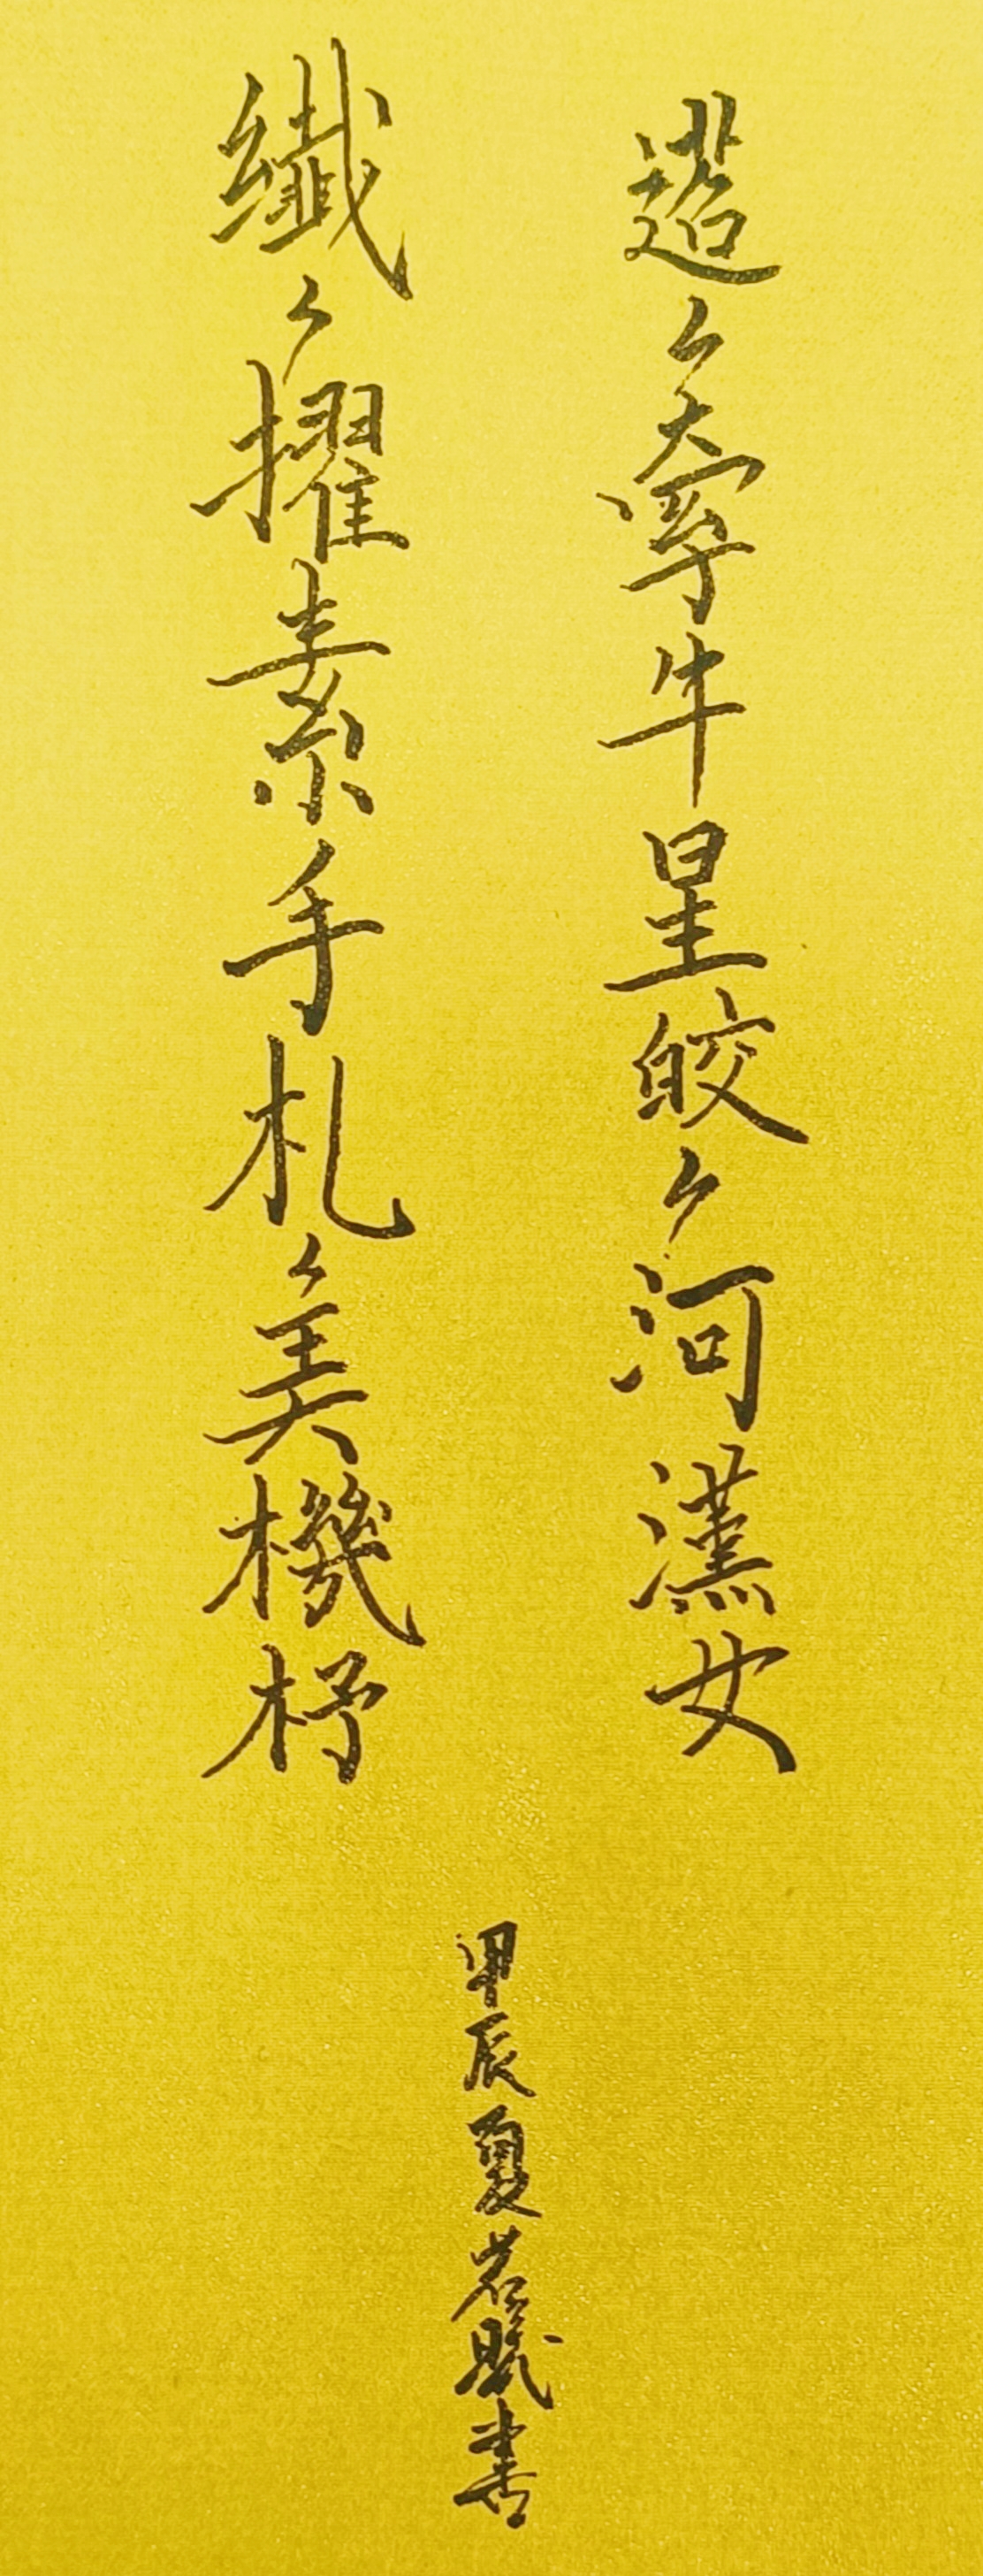 迢々牽牛星皎々河漢女
纖々擢素手札々弄機杼
甲辰夏若書